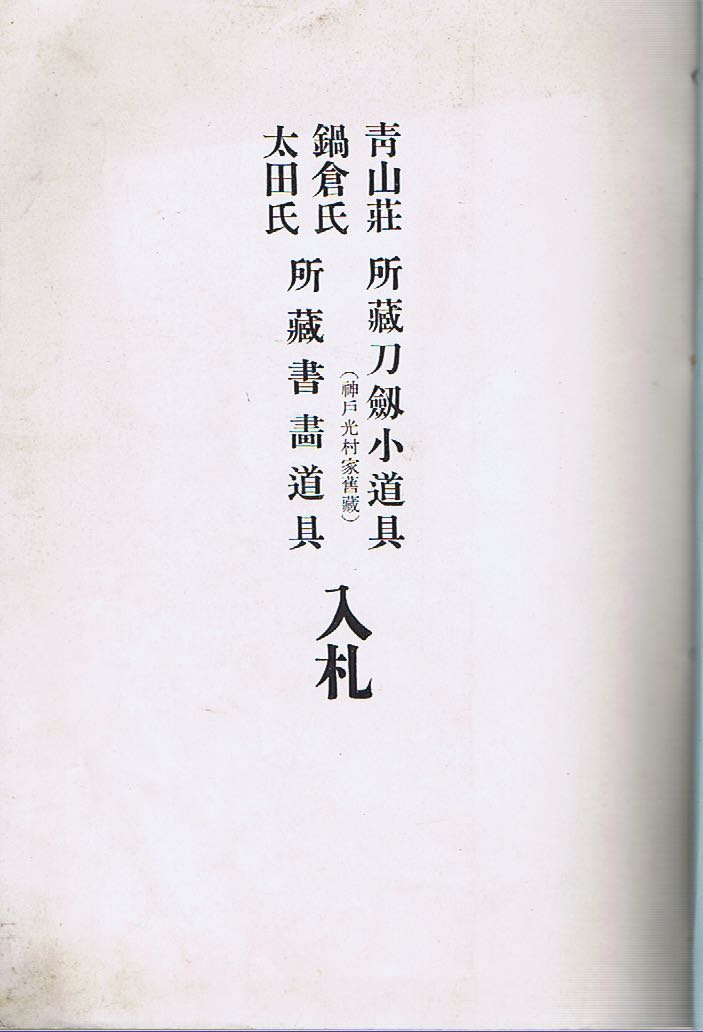 靑山莊 所藏刀劔小道具
(神戶光村家舊藏)
鍋倉氏
太田氏
所藏書畵道具
入札